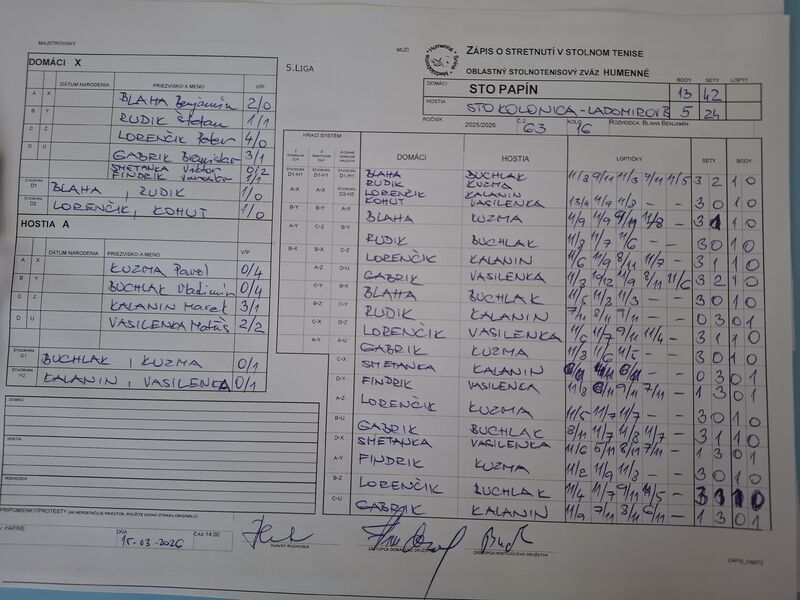 MAJSTROVSKÝ
MUŽI
ZÁPIS O STRETNUTÍ V STOLNOM TENISE
5.LIGA
OBLASTNÝ STOLNOTENISOVÝ ZVÄZ HUMENNÉ
DOMÁCI X
DÁTUM NARODENIA PRIEZVISKO A MENO V/P
A X BLAHA Benjamín 2/0
B Y RUDIK Štefan 1/1
C Z LORENČIK Peter 4/0
D U GABRIK 3/1
SMETANKA Viktor 0/2
FINDRIK 1/1
ŠTVORHRA D1 BLAHA, RUDIK 1/0
ŠTVORHRA D2 LORENČIK, KOHUT 1/0
HOSTIA A
DÁTUM NARODENIA PRIEZVISKO A MENO V/P
A X KUZMA Pavol 0/4
B Y BUCHLAK Vladimír 0/4
C Z KALANIN Marek 3/1
D U VASILENKA Matúš 2/2
ŠTVORHRA BUCHLAK, KUZMA 0/1
ŠTVORHRA H2 KALANIN, VASILENKA 0/1
DOMÁCI
HOSTIA
ROZHODCA
BODY SETY LOPTY
STO PAPÍN 13 42
HOSTIA STO KOLONICA-LADOMIROV 5 24
ROČNÍK 2025/2026 Č.Z. 63 KOLO 16 ROZHODCA BLAHA BENJAMÍN
HRACÍ SYSTÉM DOMÁCI HOSTIA LOPTIČKY SETY BODY
D1-H1 D1-H1 D1-H1 BLAHA RUDIK BUCHLAK KUZMA 11/8 9/11 11/3 9/11 11/5 3 2 1 0
A-X A-X D2-H2 LORENČIK KOHUT KALANIN VASILENKA 13/11 11/9 11/9 - - 3 0 1 0
B-Y B-Y A-X BLAHA KUZMA 11/9 11/9 9/11 11/8 - 3 1 1 0
A-Y C-Z B-Y RUDIK BUCHLAK 11/8 11/7 11/6 - - 3 0 1 0
B-X B-X C-Z LORENČIK KALANIN 11/6 11/9 8/11 11/7 - 3 1 1 0
A-Z D-U GABRIK VASILENKA 11/3 10/12 11/9 8/11 11/6 3 2 1 0
C-Y B-X BLAHA BUCHLAK 11/5 11/3 11/3 - - 3 0 1 0
B-Z C-Y RUDIK KALANIN 7/11 8/11 9/11 - - 0 3 0 1
C-X D-Z LORENČIK VASILENKA 11/6 11/7 9/11 11/4 - 3 1 1 0
A-Y A-U GABRIK KUZMA 11/3 11/6 11/5 - - 3 0 1 0
C-X SMETANKA KALANIN - - 0 3 0 1
D-Y FINDRIK VASILENKA 11/8 6/11 9/11 7/11 - 1 3 0 1
A-Z LORENČIK KUZMA 11/5 11/7 11/7 - - 3 0 1 0
B-U GABRIK BUCHLAK 8/11 11/7 11/8 11/7 - 3 1 1 0
D-X SMETANKA VASILENKA 11/6 5/11 8/11 7/11 - 1 3 0 1
A-Y FINDRIK KUZMA 11/2 11/9 11/3 - - 3 0 1 0
B-Z LORENČIK BUCHLAK 11/4 11/7 9/11 11/5 - 3 1 1 0
C-U GABRIK KALANIN 11/9 7/11 8/11 6/11 - 1 3 0 1
PRIPOMIENKY/PROTESTY (AK NEPOSTAČUJE PRIESTOR, POUŽITE ZADNÚ STRANU ORIGINÁLU)
V PAPÍNE DŇA 15.03.2026 ČAS 14:00
HLAVNÝ ROZHODCA ZÁSTUPCA DOMÁCEHO DRUŽSTVA ZÁSTUPCA HOSŤUJÚCEHO DRUŽSTVA
ZAPIS_EMSTZ